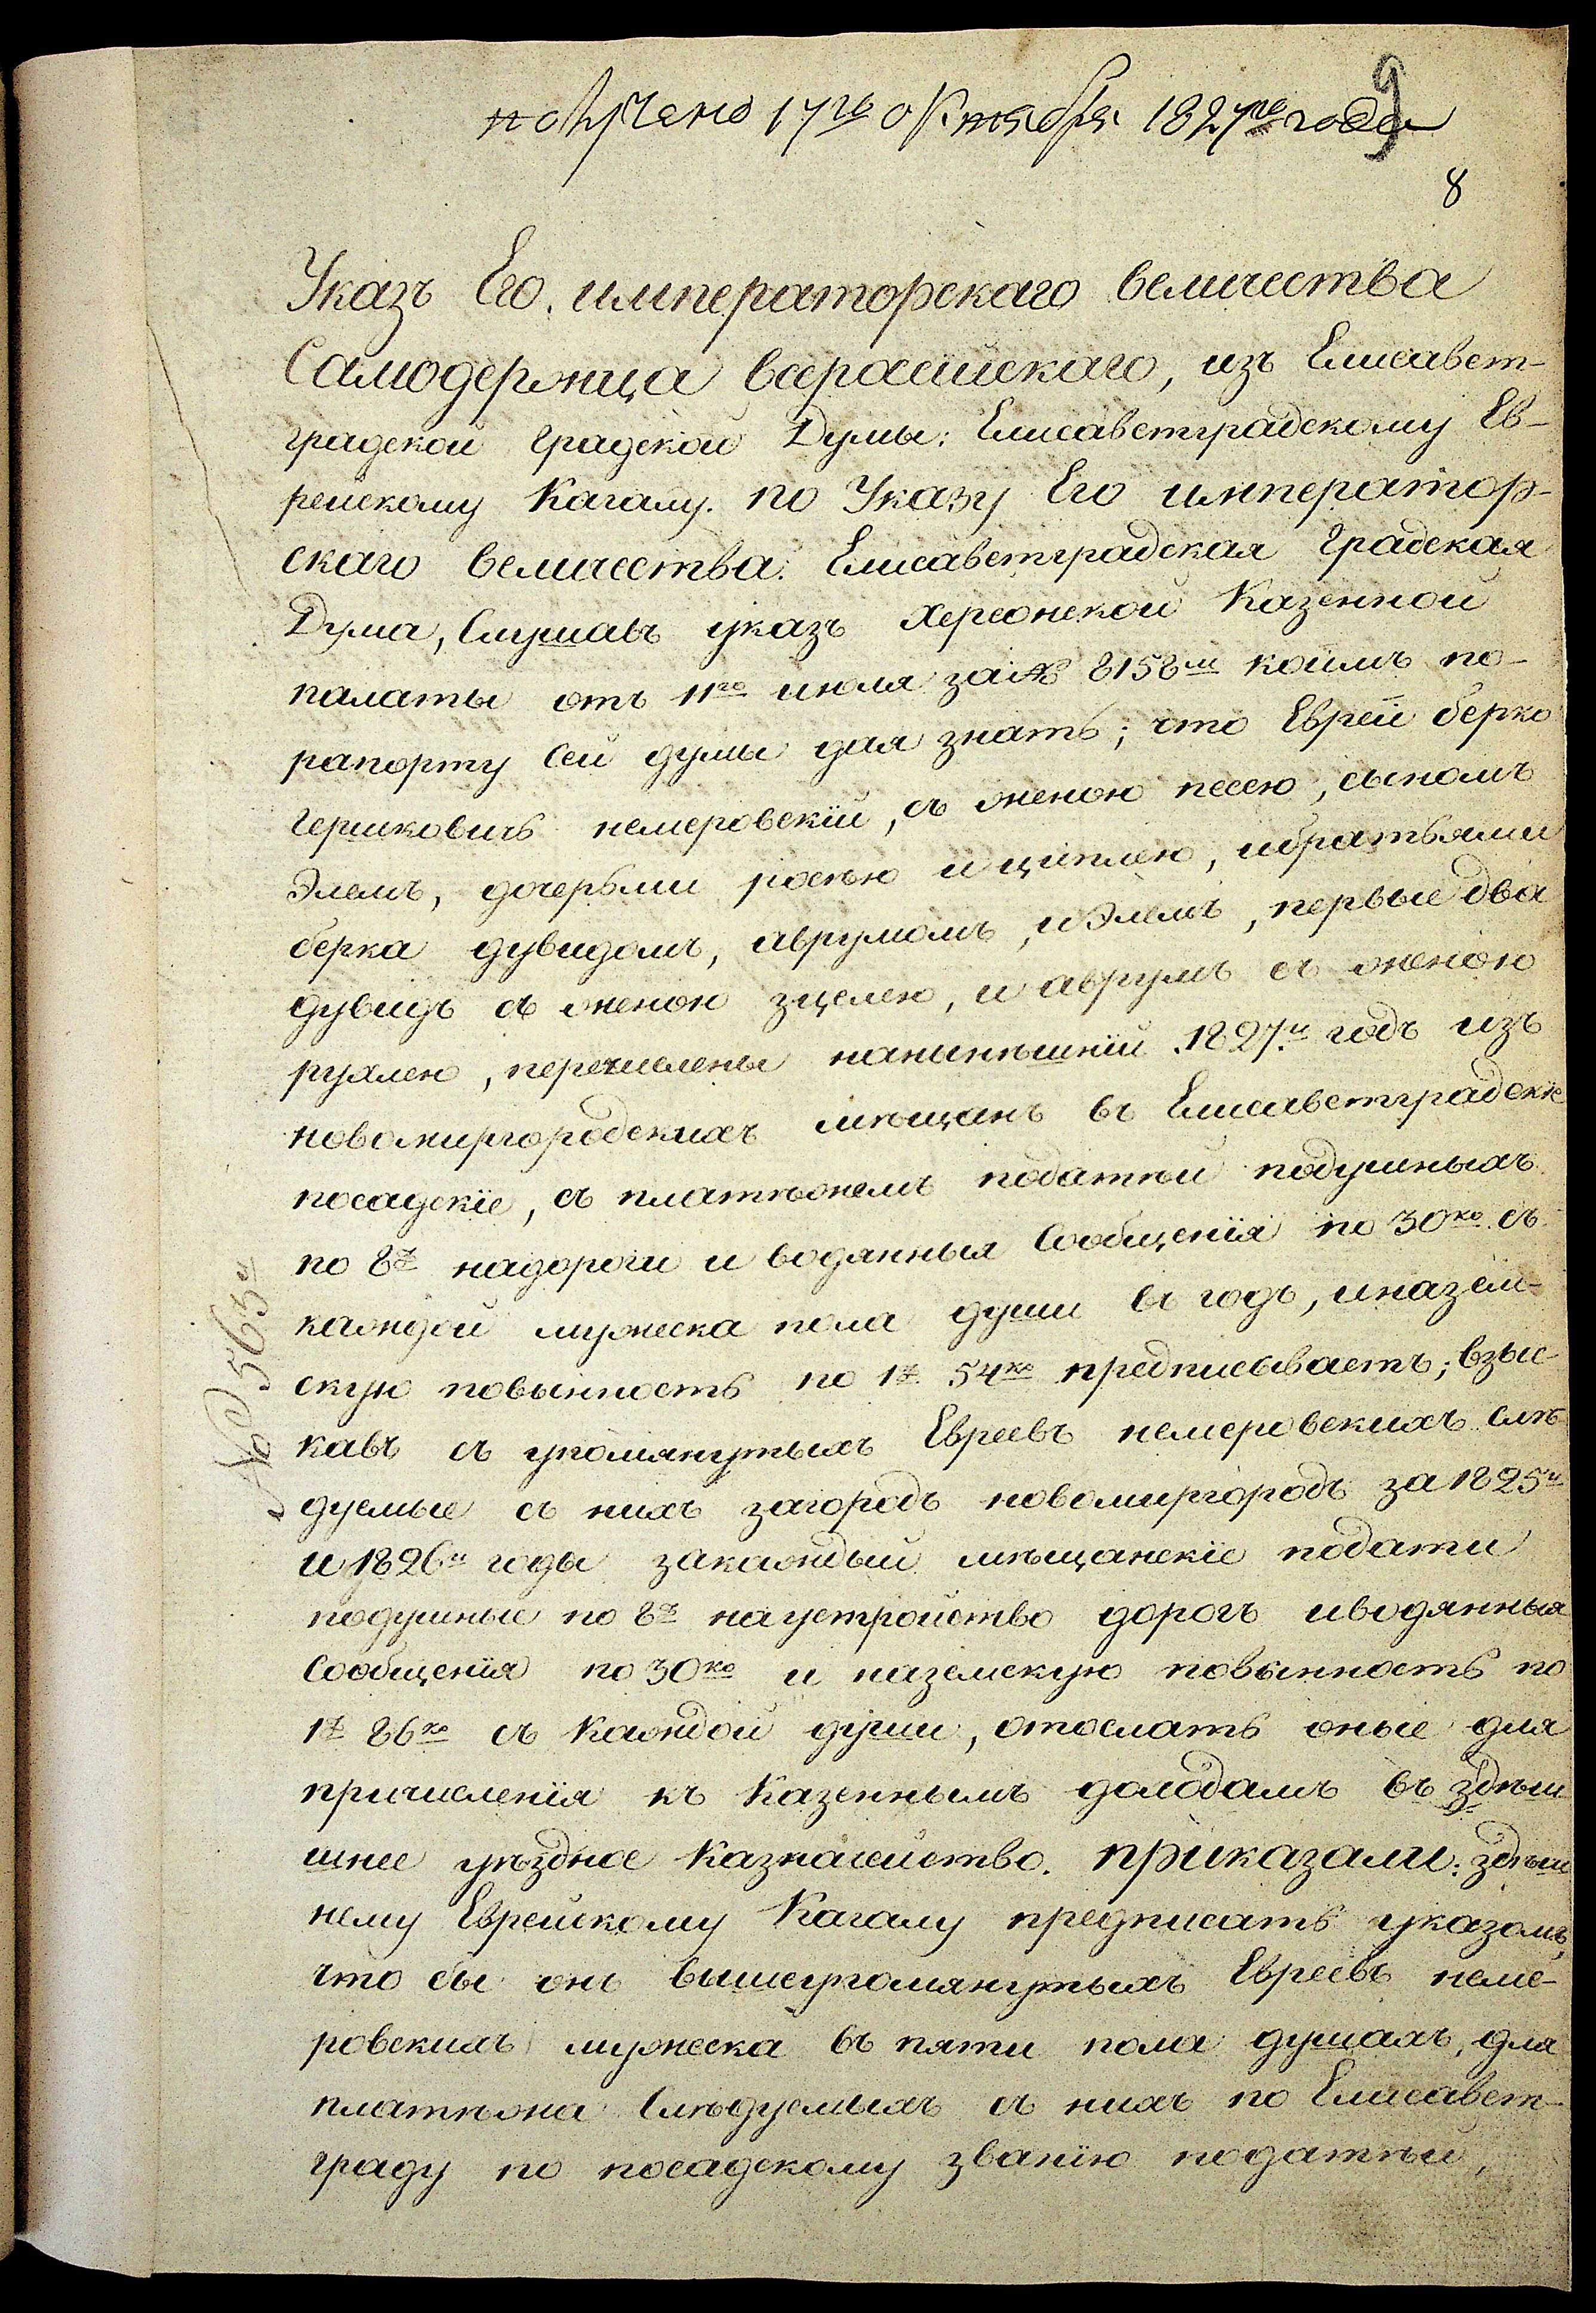 получено 17го октября 1827го года
9
8
Указъ Его императорскаго величества
Самодержца всеросiйскаго, изъ Елисавет-
градской градской Думы: Елисаветградскому Ев-
рейскому Кагалу. по Указу Его император-
скаго величества. Елисаветградская градская
Дума, Слушавъ указъ Херсонской Казенной
палаты отъ 11го июля за № 8158м коимъ по-
рапорту сей думы дая знать; что Еврей берко
гершковичь немеровскiй, съ женою песею, сыномъ
Элемъ, дочерьми росею и циплею, ибратьями
берка дувидомъ, аврумомъ, иЭлемъ, первые два
дувидъ съ женою зцелею, и аврумъ съ женою
рухлею, перечислены нанынѣшнiй 1827й годъ изъ
новомиргородскихъ мѣщанъ въ Елисаветградскiе
посадскiе, съ платѣжемъ податѣй подушныхъ
по 8р надороги и водянныя Сообщенiя по 30ко съ
каждой мужеска пола души въ годъ, иназем-
скую повынность по 1р 54ко предписываетъ; взыс-
кавъ съ упомянутыхъ Евреевъ немеровскихъ слѣ
дуемые съ нихъ загородъ новомиргородъ за 1825й
и 1826й годы закаждый мѣщанскiе подати
подушные по 8р наустройство дорогъ иводянныя
Сообщенiя по 30ко и наземскую повынность по
1р 86ко съ каждой души, отослать оные для
причисленiя къ Казеннымъ доходамъ въ здѣш
шнее уѣздное Казначейство. приказали: здѣш
нему Еврейскому Кагалу предписать указомъ,
что бы онъ вышеупомянутыхъ Евреевъ неме-
ровскихъ мужеска въ пяти пола душахъ, для
платѣжа Слѣдуемыхъ съ нихъ по Елисавет-
граду по посадскому званiю податѣй,
№ 563й